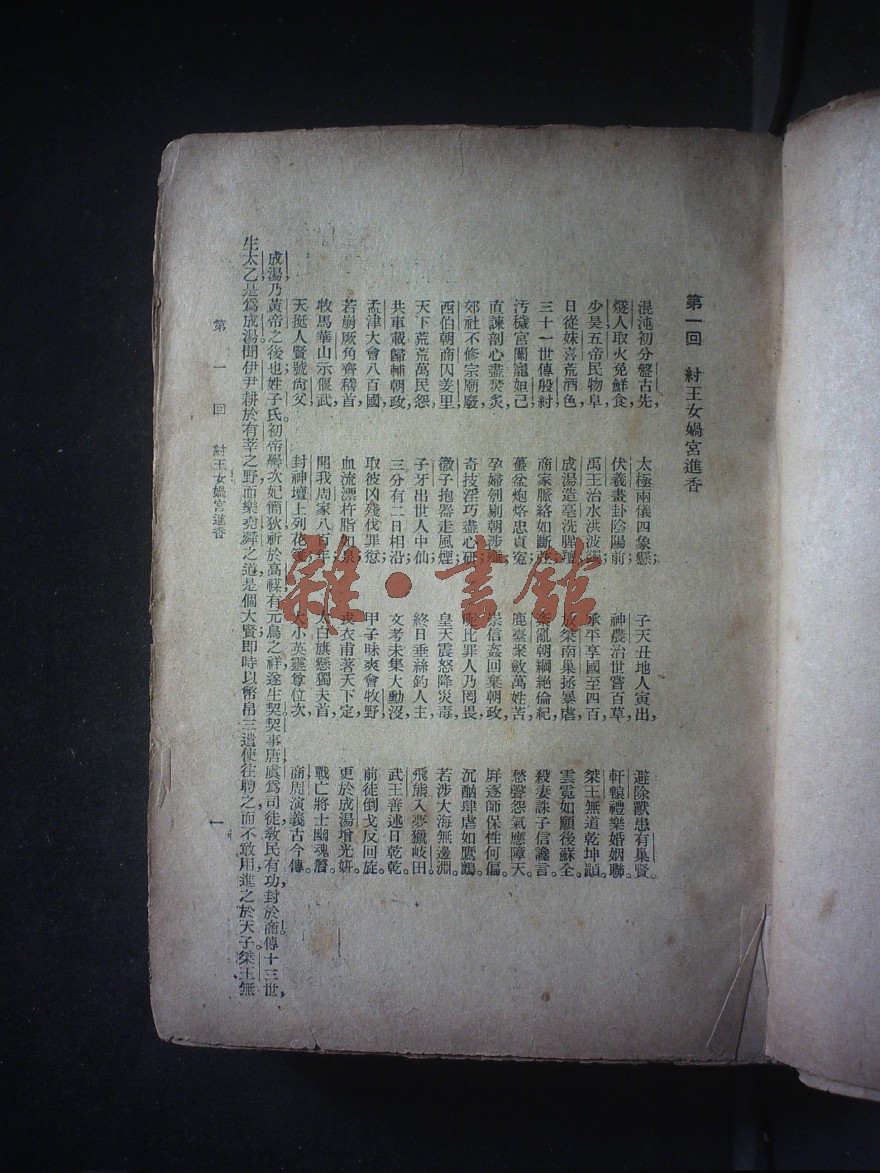 第一回　紂王女媧宮進香
混沌初分盤古先，太極兩儀四象懸；子天丑地人寅出，避除獸患有巢賢。
燧人取火免鮮食，伏羲畫卦陰陽前；神農治世嘗百草，軒轅禮樂婚姻聯。
少昊五帝民物阜，禹王治水洪波蠲；承平享國至四百，桀王無道乾坤顚。
日從妹喜荒酒色，成湯造亳洗腥羶；放桀南巢拯暴虐，雲霓如願後蘇全。
三十一世傳殷紂，商家脈絡如斷；亂朝綱絕倫紀，殺妻誅子信讒言。
汚穢宮闈寵妲己，蠆盆炮烙忠貞寃；鹿臺聚斂萬姓苦，愁聲怨氣應障天。
直諫剖心盡焚炙，孕婦刳剔朝涉；崇信姦回棄朝政，屛逐師保性何偏。
郊社不修宗廟廢，奇技淫巧盡心研；比罪人乃罔畏，沉酗肆虐如鷹鸇。
西伯朝商囚羑里，微子抱器走風煙；皇天震怒降災毒，若涉大海無邊淵。
天下荒荒萬民怨，子牙出世人中仙；終日垂絲釣人主，飛熊入夢獵岐田。
共車載歸輔朝政，三分有二日相沿；文考未集大勳沒，武王善述日乾乾。
孟津大會八百國，取彼凶殘伐罪愆；甲子昧爽會牧野，前徒倒戈反回旋。
若崩厥角齊稽首，血流漂杵脂如泉；戎衣甫著天下定，更於成湯增光姸。
牧馬華山示偃武，開我周家八百年；太白旗懸獨夫首，戰亡將士幽魂潛。
天挺人賢號尙父，封神壇上列花；大小英靈尊位次，商周演義古今傳。
成湯乃黃帝之後也，姓子氏。初，帝嚳次妃簡狄祈於高禖，有元鳥之祥，遂生契。契事唐虞爲司徒，敎民有功，封於商。傳十三世，
生太乙，是爲成湯。聞伊尹耕於有莘之野，而樂堯舜之道，是個大賢，即時以幣帛三遣使往聘之，而不敢用，進之於天子。桀王無
第一回　紂王女媧宮進香
一
雜·書館